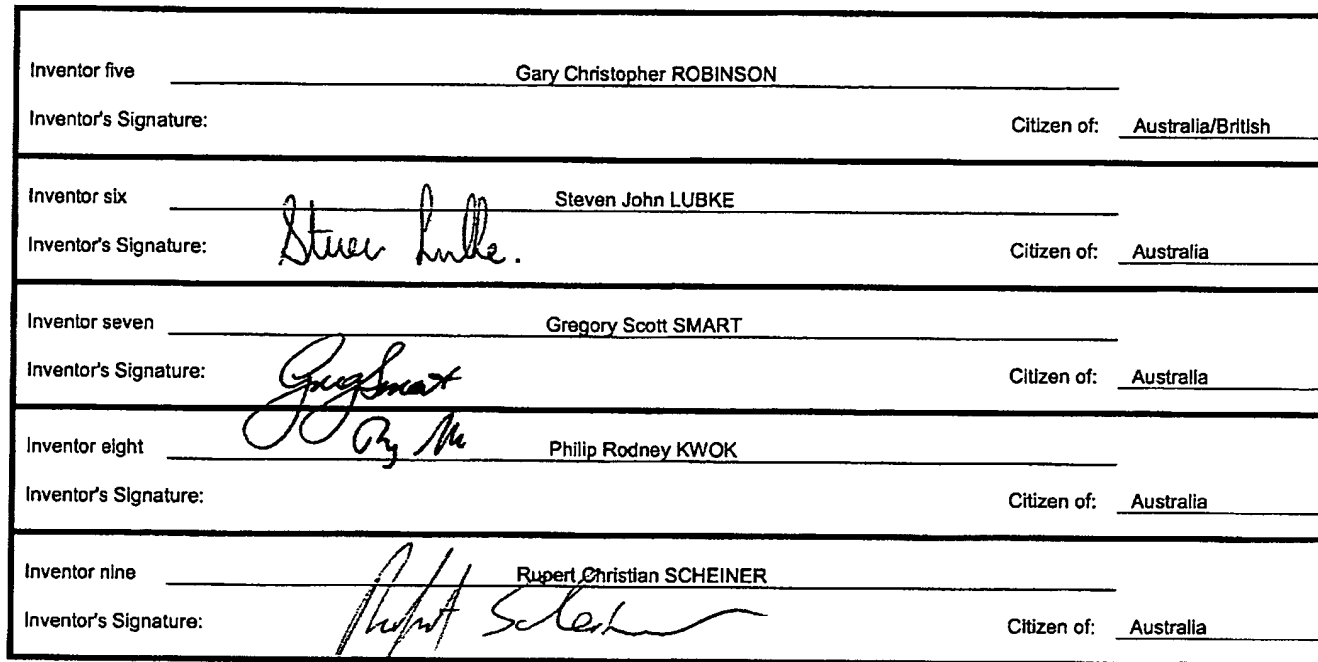 Inventor five Gary Christopher ROBINSON
Inventor's Signature: Citizen of: Australia/British
Inventor six Steven John LUBKE
Inventor's Signature: Steven Lubke. Citizen of: Australia
Inventor seven Gregory Scott SMART
Inventor's Signature: Greg Smart Citizen of: Australia
Inventor eight Philip Rodney KWOK
Inventor's Signature: Citizen of: Australia
Inventor nine Rupert Christian SCHEINER
Inventor's Signature: Rupert Scheiner Citizen of: Australia